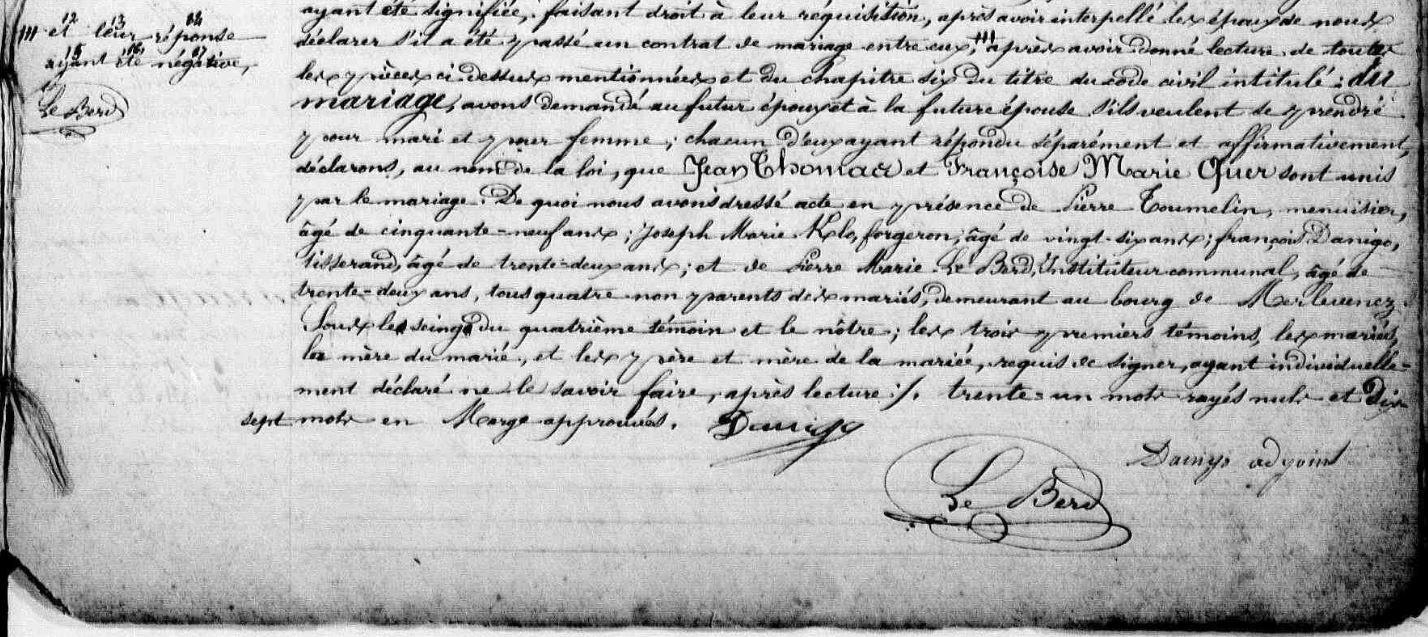 12 13 14
/// et leur réponse
15 16 17
ayant été négative,
Le Berd
ayant été signifiée, faisant droit à leur réquisition, après avoir interpellé les époux de nous
déclarer s'il a été passé un contrat de mariage entre eux, /// après avoir donné lecture de toutes
les pièces ci dessus mentionnées et du chapitre six du titre du code civil intitulé : du
mariage, avons demandé au futur époux et à la future épouse s'ils veulent se prendre
pour mari et pour femme ; chacun d'eux ayant répondu séparément et affirmativement,
déclarons, au nom de la loi, que Jean Thomas et Françoise Marie Quer sont unis
par le mariage. De quoi nous avons dressé acte en présence de Pierre Toumelin, menuisier,
âgé de cinquante-neuf ans ; Joseph Marie Klo, forgeron, âgé de vingt-six ans ; françois Danigo,
tisserand, âgé de trente-deux ans ; et de Pierre Marie Le Berd, Instituteur communal, âgé de
trente-deux ans, tous quatre non parents des mariés, demeurant au bourg de Merlevenez
Sous les seings du quatrième témoin et le nôtre ; les trois premiers témoins, les mariés,
la mère du marié, et les père et mère de la mariée, requis de signer, ayant individuelle-
ment déclaré ne le savoir faire, après lecture ./. trente-un mots rayés nuls et Dix
sept mots en Marge approuvés. Danigo
Danigo adjoint
Le Berd